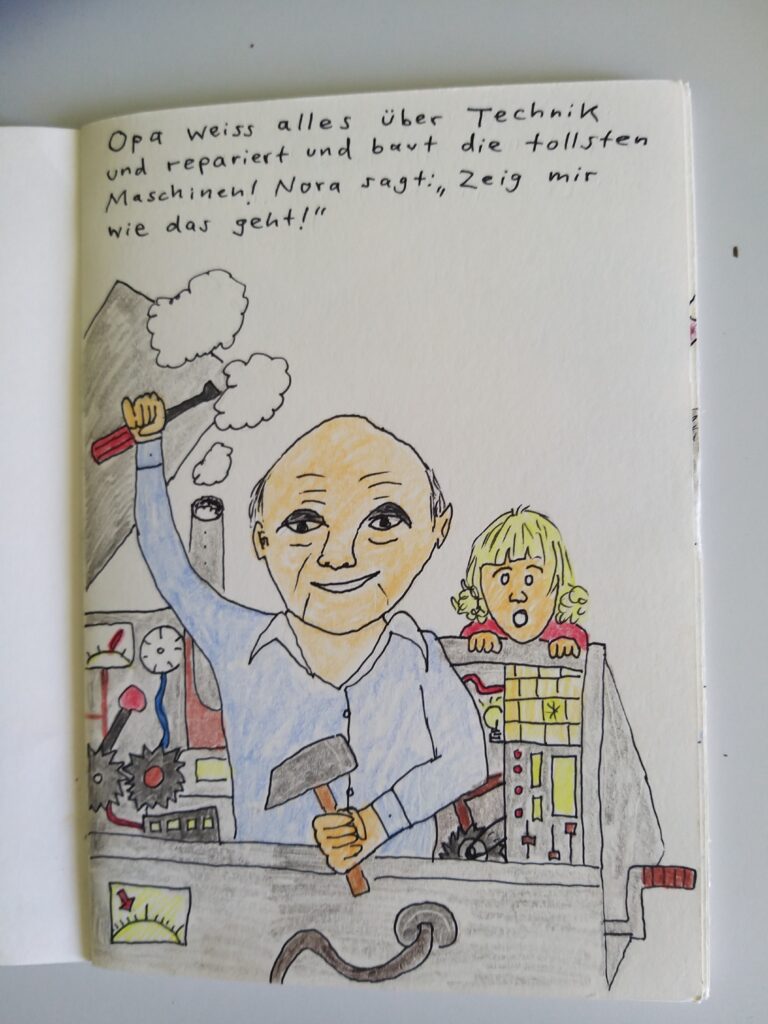 Opa weiss alles über Technik
und repariert und baut die tollsten
Maschinen! Nora sagt: „Zeig mir
wie das geht!“